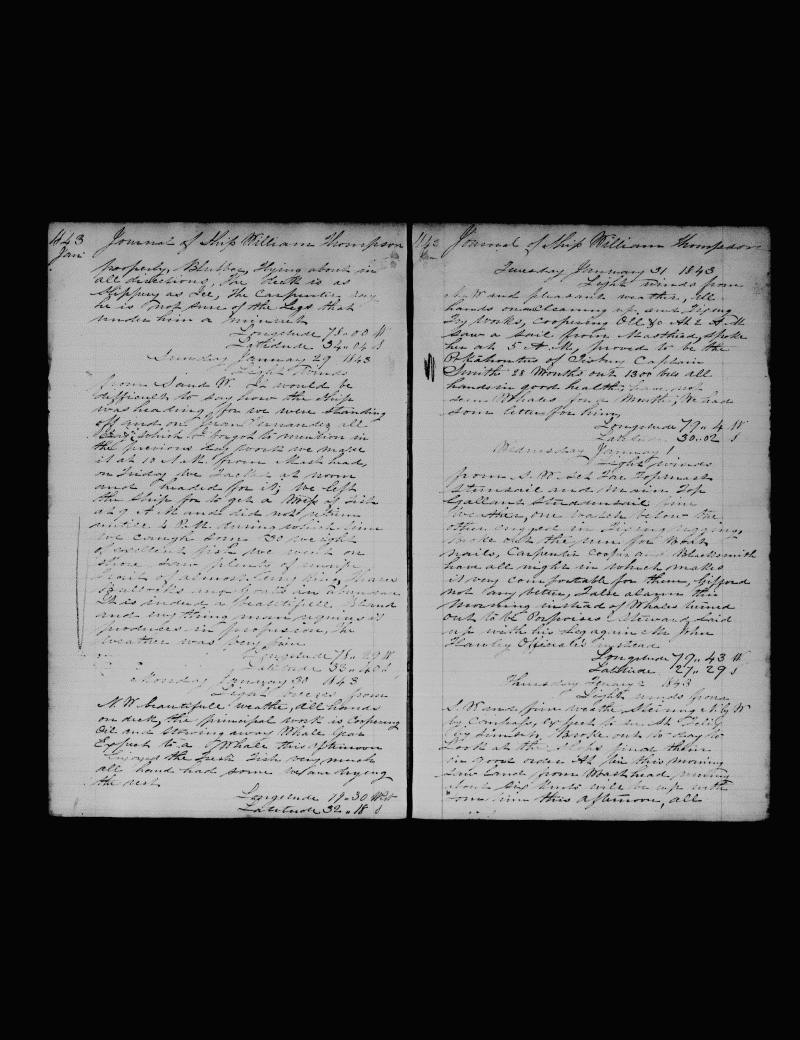 1843 Journal of Ship William Thompson
Jan
properly, Blubber, flying about in
all directions, the deck is as
Slippery as Ice, the Carpenter say
he is not sure of the Legs that
under him a minuet
Longitude 78..00 W
Latitude 34..04 S
Sunday January 29 1843
Light winds
from S and W. It would be
difficult to say how the Ship
was heading, for we were standing
off and on Juan Fernandez all
which I forgot to mention in
the previous day work we make
it at 10 A.M. from Masthead,
on Friday we Tacked at noon
and headed for it, we left
the Ship for to get a Mess of Fish
at 9 A.M. and did not return
untill 4 P.M. during which time
we caugh some 30 weight
of excellent fish we went on
Shore saw plenty of
fruit of almost every kind,
Bullocks and Goats in abundan
It is indeed a beautifull Island
and evything man requires is
produces in profusion, the
weather was very fine
Longitude 78..29 W
Latitude 33..40 S
Monday January 30 1843
Light breezes from
N.W. beautifull weather, all hands
on deck, the principal work is Coopering
Oil and stowing away Whale Gear
Expect to a Whale this afternoon
Enjoyed the fresh Fish very much
all hand had some we are drying
the rest
Longitude 79..30 West
Latitude 32..18 S
Journal of Ship William Thompson
Jan
Tuesday January 31 1843
Light winds from
N.W and pleasant weather, all
hands on cleaning up, such
Try Works, coopering Oil &c At 2 A.M
saw a sail from Masthead, spoke
her at 5 A.M, proved to be the
Pokahontus of Tisbury Captain
Smith 28 Months out 1300 bbls all
hands in good health, have not
seen Whales for a Month, We had
some letter for him,
Longitude 79..4 W
Latitude 30..02 S
Wednesday January 1
Light winds
from S. W. Set Fore Topmast
Stunsail and Main Top
Gallant Studdinsail fine
weather, one watch below the
other engged in fixing rigging,
Broke out the run for Boat
nails, Carpenter Cooper and Blacksmith
have all night in which makes
it very comfortable for them, Gifford
not any better, False alarm this
morning instead of Whales turned
out to be Porpoises Steward laid
up with his leg again Mr John
Hawley Officiates instead
Longitude 79..43 W
Latitude 27..29 S
Thursday 2 1843
Light winds from
S. W and fine weather Steering N. by W
by Compass, expect to be At
Broke out to day to
Look at the find them
in good order At this morning
Saw Land from Masthead,
about Six knots will be up with
some time this afternoon, all